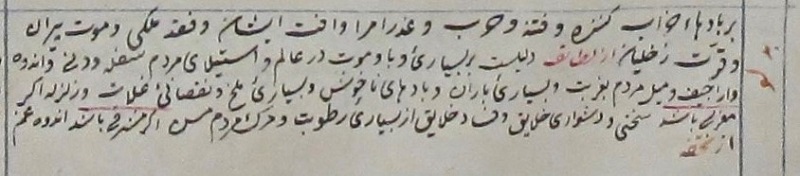 بر بادهاء خراب کننده و فتنه و حرب و غدر امرا و آفت ایشان و فقد ملکی و موت پیران
و قوّت زحلیان از لطایف دلیلست بر بسیاری وبا و موت در عالم و استیلای مردم سفله و دنی و اندوه
و اراجیف و میل مردم بغربت و بسیاری باران و بادهای ناخوش و بسیاری ملخ و نقصانی غلات و زلزله اگر
مغربی باشد سختی و دشواری خلایق و فساد خلایق از بسیاری رطوبت و مرک مردم مسن اگر مشرقی باشد اندوه و غم
از